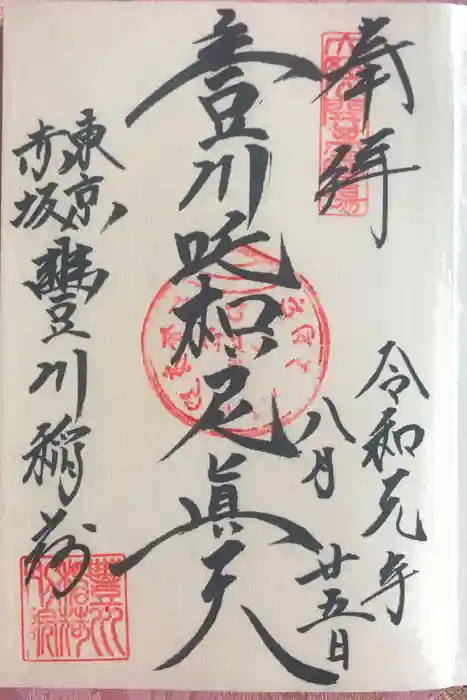 奉拝
令和元年
八月廿五日
豊川吒枳尼眞天
東京
赤坂
豐川稲荷